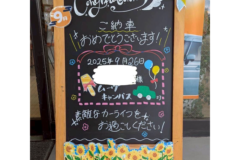 Congratulations
ご納車
おめでとうございます!
2025年9月26日
素敵なカーライフを
お過ごしください!